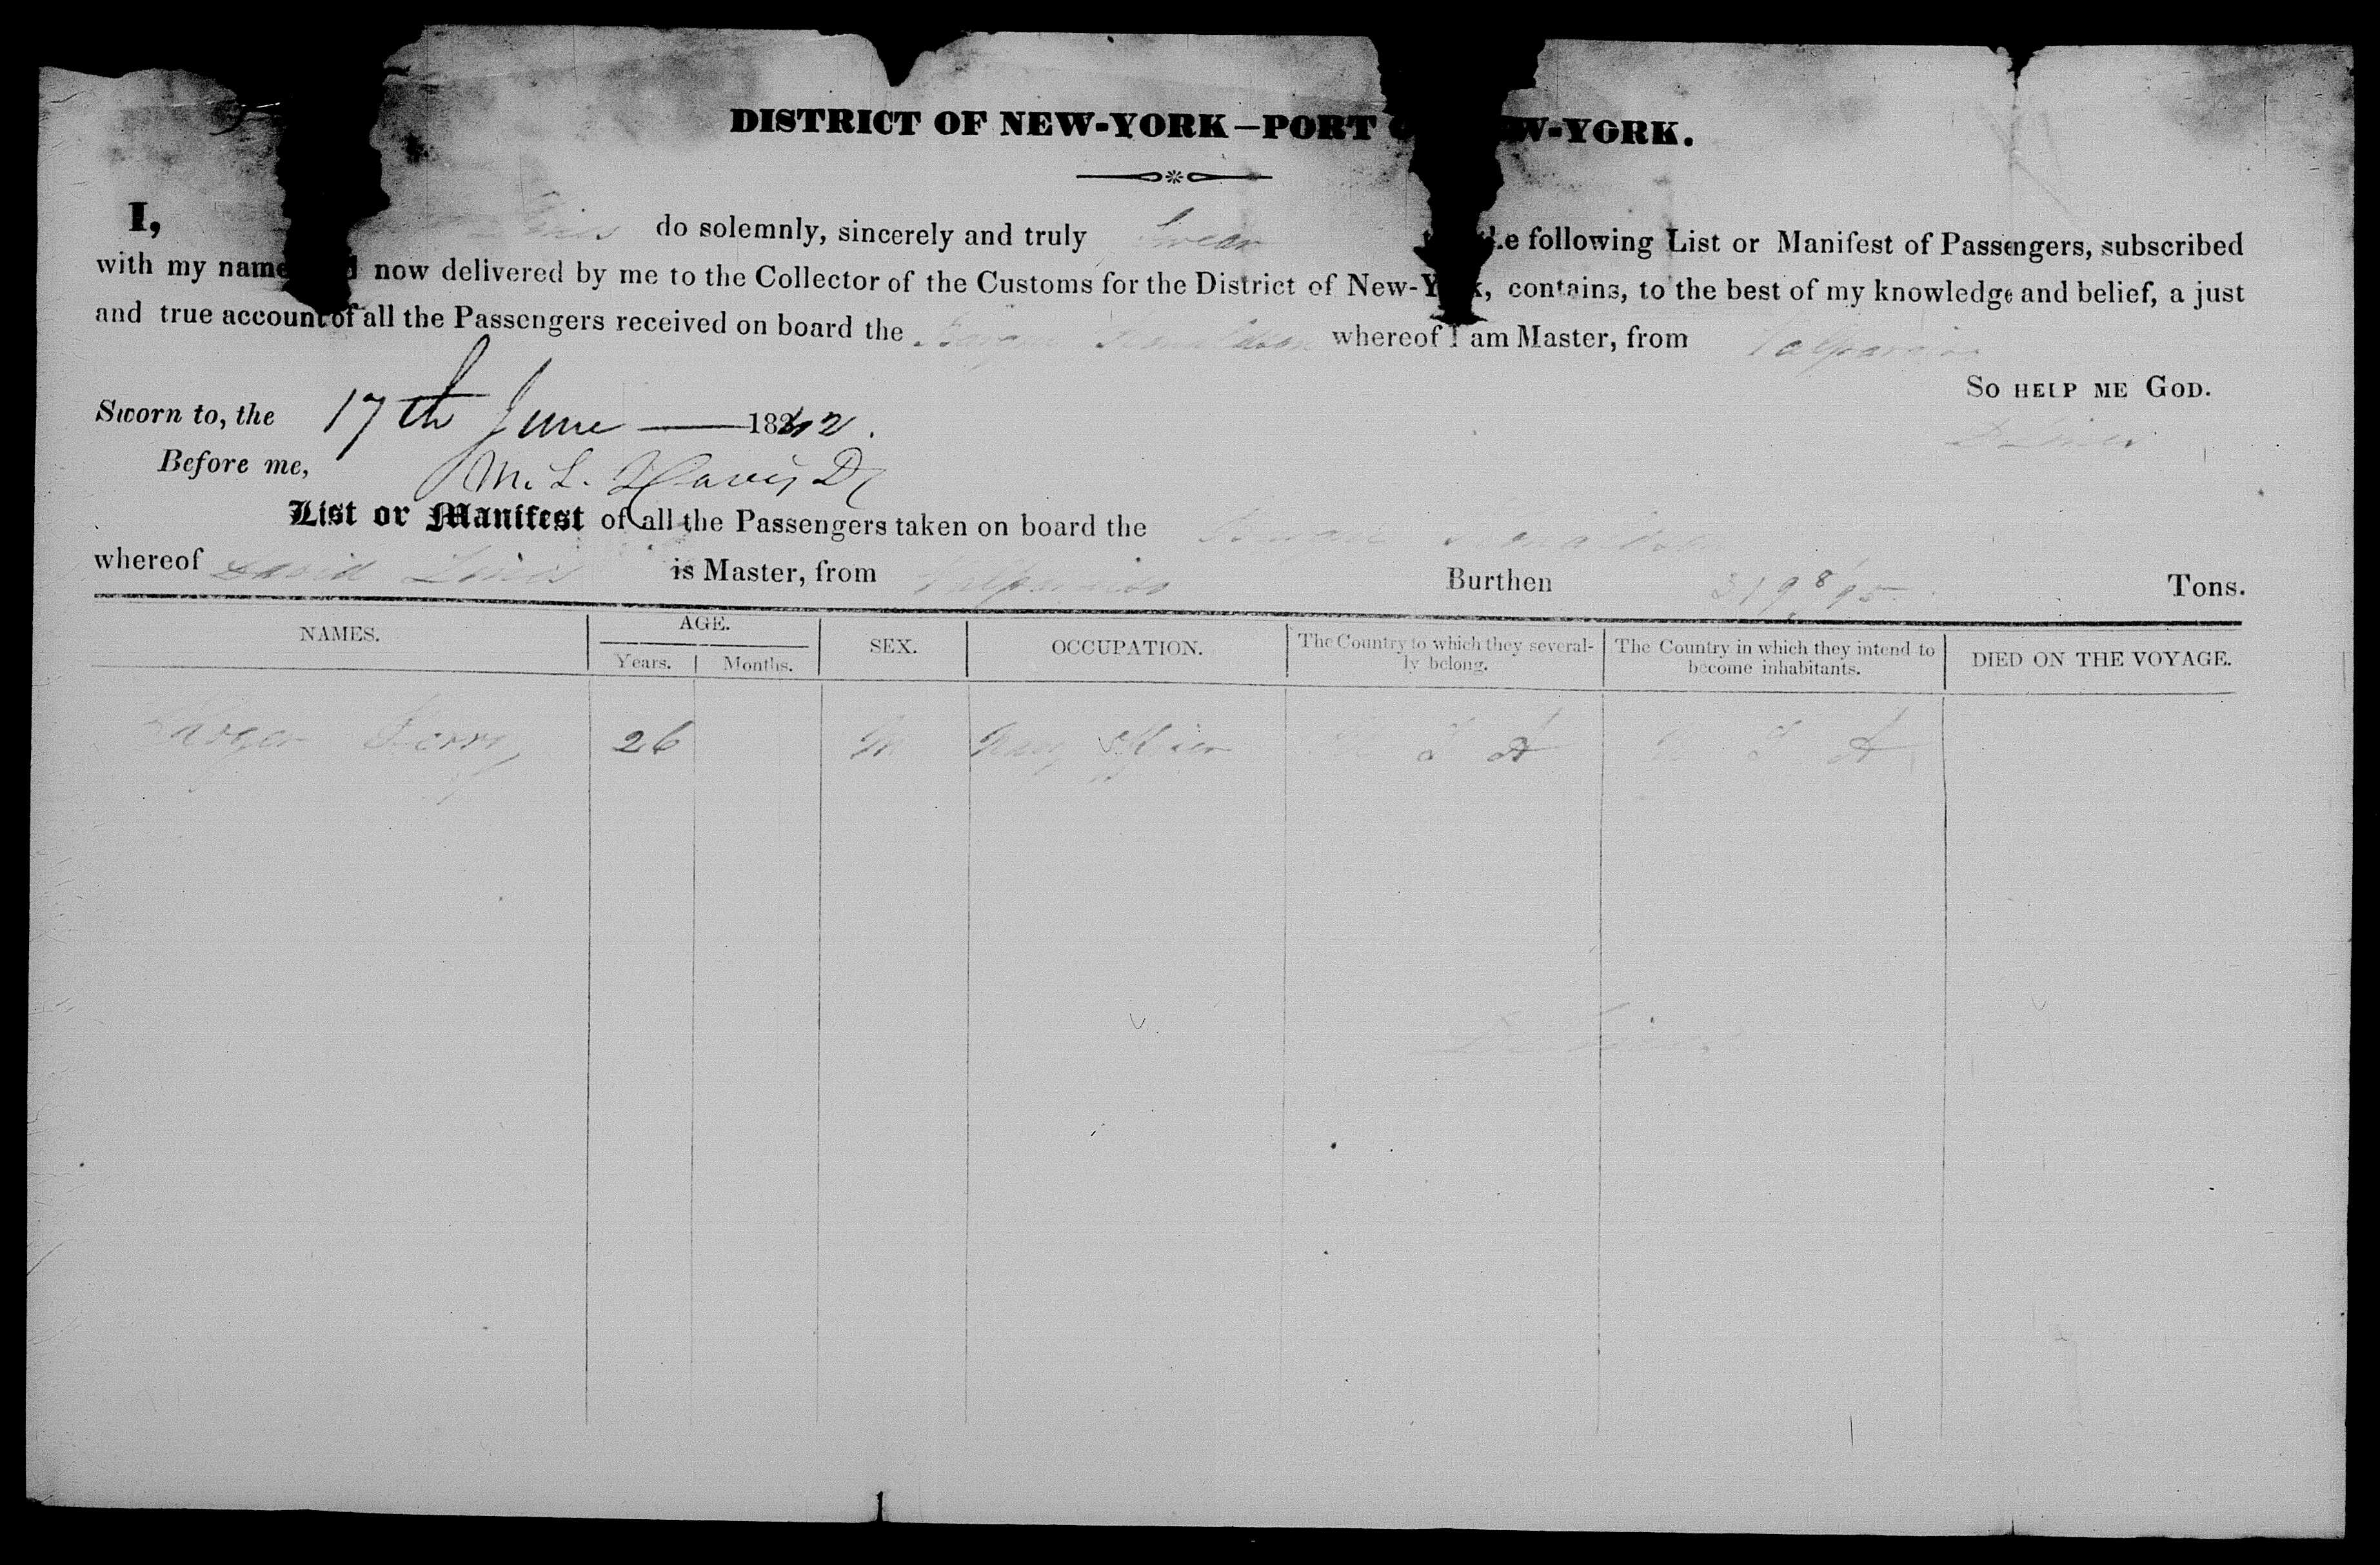 DISTRICT OF NEW-YORK—PORT W-YORK.
I, do solemnly, sincerely and truly Swear following List or Manifest of Passengers, subscribed
with my name now delivered by me to the Collector of the Customs for the District of New-Y k, contains, to the best of my knowledge and belief, a just
and true account of all the Passengers received on board the whereof I am Master, from Valparaiso
SO HELP ME GOD.
Sworn to, the 17th June — 1842.
Before me, M. L. Davis
List or Manifest of all the Passengers taken on board the
whereof David is Master, from Valparaiso Burthen 319 8/95 Tons.
NAMES. AGE. SEX. OCCUPATION. The Country to which they several- The Country in which they intend to DIED ON THE VOYAGE.
Years. Months. ly belong. become inhabitants.
Roger Perry 26 M Navy Officer U S A U S A